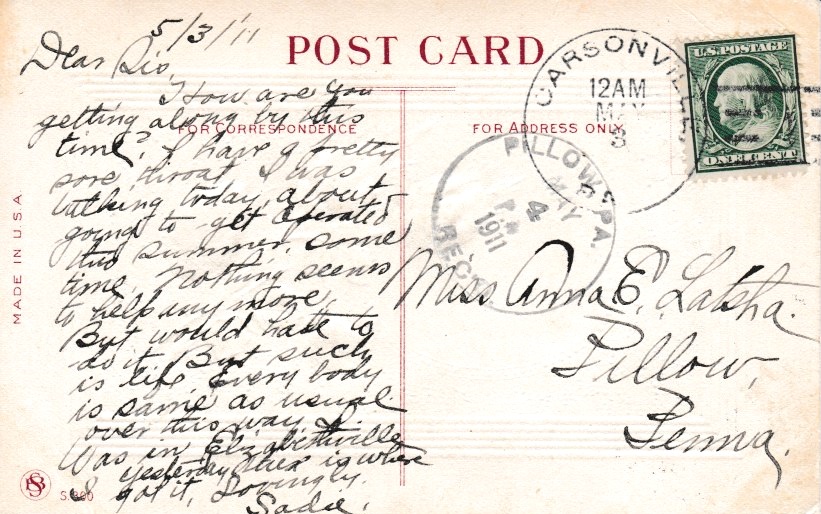 5/3/11
POST CARD
Dear Sis,
How are you
getting along by this
time? I have a pretty
sore throat I was
talking today about
going to get operated
this summer, some
time. Nothing seems
to help any more.
But would hate to
do it. But such
is life. Every body
is same as usual
over this way. I
was in Elzabethville
yesterday this is where
I got it. Lovingly
Sadie.
FOR CORRESPONDENCE
FOR ADDRESS ONLY
MADE IN U.S.A.
S. 800
CARSONVILLE
12AM
MAY
3
PILLOW, PA.
MAY
4
1911
REC'D
U.S. POSTAGE
ONE CENT
Miss Anna E. Latsha.
Pillow,
Penna.